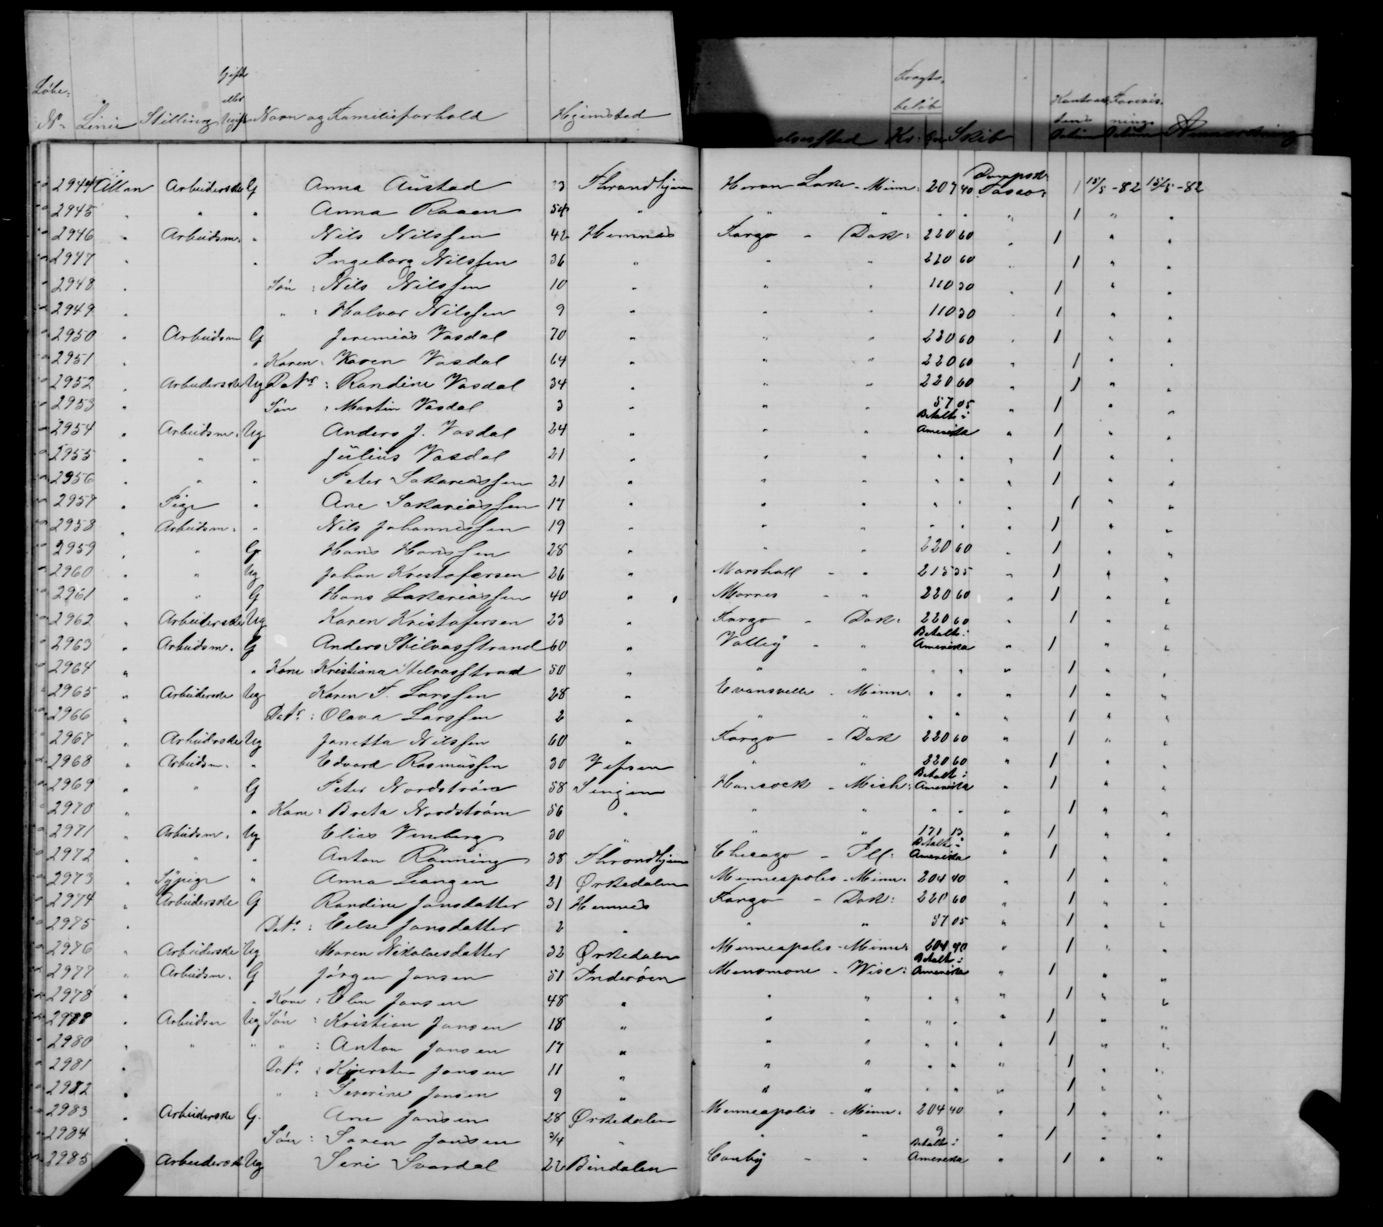 Løbe- No Linie Stilling Gift eller Ugift Navn og Familieforhold Hjemsted Kr. Skib
2944 Allan Arbeiderske G Anna Austad Throndhjem Heron Lake - Minn: 207 40 Dampsk Tasso: 1 15/5 - 82 15/5 - 82
2945 " " " Anna Raaen 54 " " " " " " 1 " "
2946 " Arbeidsm. " Nils Nilssen 42 Hemnes Fargo - Dak: 220 60 " 1 " "
2947 " " Ingeborg Nilssen 36 " " " 220 60 " 1 " "
2948 " Søn : Nils Nilssen 10 " " " 110 30 " 1 " "
2949 " " : Halvor Nilssen 9 " " " 110 30 " 1 " "
2950 " Arbeidsm G Jeremias Vasdal 70 " " " 220 60 " 1 " "
2951 " " Konen: Karen Vasdal 64 " " " 220 60 " 1 " "
2952 " Arbeiderske Ug Datr : Randine Vasdal 34 " " " 220 60 " 1 " "
2953 " Søn : Martin Vasdal 3 " " " 57 05 " 1 " "
2954 " Arbeidsm. Ug Anders J. Vasdal 24 " " " Betalt i Amerika " 1 " "
2955 " " " Julius Vasdal 21 " " " " " " 1 " "
2956 " " " Peter Sakariassen 21 " " " " " " 1 " "
2957 " Pige " Ane Sakariassen 17 " " " " " " 1 " "
2958 " Arbeidsm. " Nils Johannessen 19 " " " " " " 1 " "
2959 " " G Hans Hanssen 28 " " " 220 60 " 1 " "
2960 " " Ug Johan Kristofersen 26 " Marshall - " 215 35 " 1 " "
2961 " " G Hans Zakariassen 40 " Morris - " 220 60 " 1 " "
2962 " Arbeiderske Ug Karen Kristofersen 23 " Fargo - Dak: 220 60 " 1 " "
2963 " Arbeidsm. G Anders Stilvasstrand 60 " Valley - " Betalt i Amerika " 1 " "
2964 " " Kone : Kristiana Stilvasstrad 50 " " " " " " 1 " "
2965 " Arbeiderske Ug Karen F. Larssen 28 " Evansville - Minn: " " " 1 " "
2966 " Datr : Olava Larssen 2 " " " " " " 1 " "
2967 " Arbeiderske Ug Janetta Nilssen 60 " Fargo - Dak 220 60 " 1 " "
2968 " Arbeidsm. " Edvard Rasmussen 30 Vefsen " " 220 60 " 1 " "
2969 " " G Peter Nordstrøm 58 Hancock - Mich: Betalt i Amerika " 1 " "
2970 " " Kone : Breta Nordstrøm 56 " " " " " " 1 " "
2971 " Arbeidsm. Ug Elias Vinberg 30 " " " 171 " 1 " "
2972 " " " Anton Rønning 38 Throndhjem Chicago - Ill: Betalt i Amerika " 1 " "
2973 " Sypige " Anna Leangen 21 Ørkedalen Minneapolis - Minn: 204 40 " 1 " "
2974 " Arbeiderske G Randine Jonsdatter 31 Hemnes Fargo - Dak: 220 60 " 1 " "
2975 " Datr : Jonsdatter 2 " " " 57 05 " 1 " "
2976 " Arbeiderske Ug Maren Nikolaisdatter 32 Ørkedalen Minneapolis - Minn: 204 40 " 1 " "
2977 " Arbeidsm. G Jørgen Jansen 51 Inderøen Menomone - Wisc: Betalt i Amerika " 1 " "
2978 " " Kone : Elen Jansen 48 " " " " " " 1 " "
Arbeidsm Ug Søn : Kristian Jansen 18 " " " " " " 1 " "
2980 " " " " : Anton Jansen 17 " " " " " " 1 " "
2981 " Datr : Jansen 11 " " " " " " 1 " "
2982 " " : Severine Jansen 9 " " " " " " 1 " "
2983 " Arbeiderske G. Ane Jansen 28 Ørkedalen Minneapolis - Minn: 204 40 " 1 " "
2984 " Søn : Soren Jansen 3/4 " " " 9 " 1 " "
2985 " Arbeiderske Ug Siri Saardal 22 Bindalen Canby - " Betalt i Amerika " 1 " "